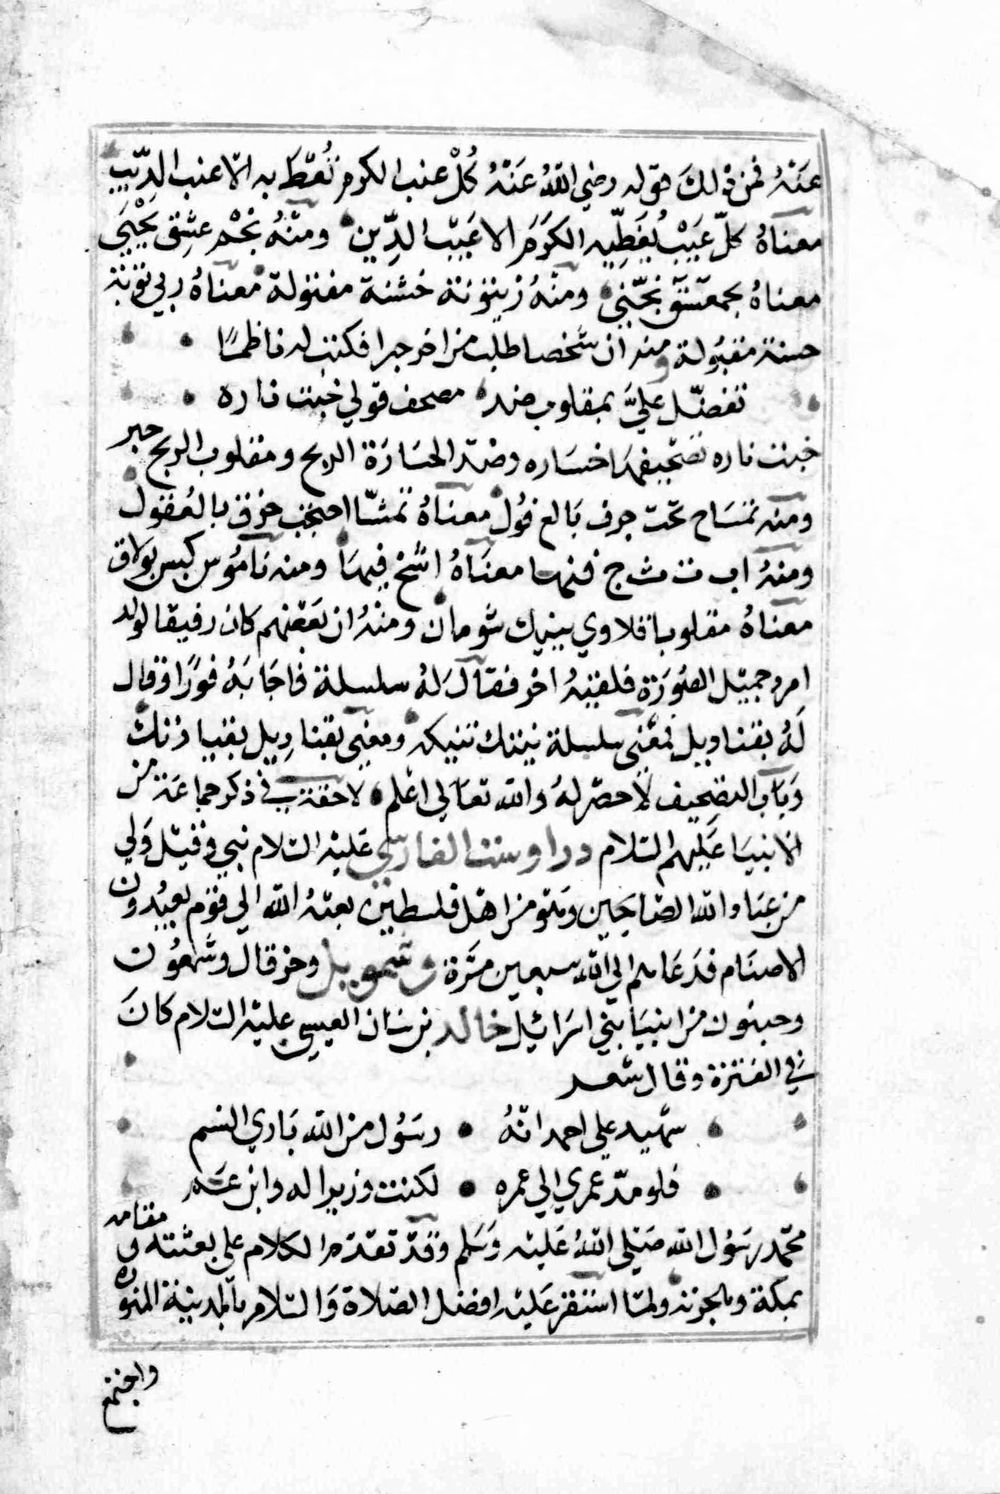 عَنْهُ فمن ذلكَ قوله رضي اللهُ عَنْهُ كُلْ عنب الكرم تُعْطَ به الا عنب الدبيب
معناهُ كلّ عَيْبٍ يُغَطِّيه الكَرَمُ الا عَيْبَ الدِّين ومنْهُ نجْم عشق يحْيَى
معناهُ بجمعشق نجّني ومنْهُ زيتونة خشنة مفتولة معناهُ ربي توبة
حسنة مقبولة ومنه ان شخصا طلب من اخر حبرا فكتب له ناظما
تفضّل عليّ بمقلوب ضد مصحف قولي خبت ناره
خبت ناره تصْحيفها خساره وضدّ الخسَارَة الربح ومقلوب الربح حبر
ومنه تمسَاح تحت جرف بَالع فوُل معناهُ تمشّا احتجب حزق بالعُقول
ومنهُ اب ت ث ج فنها معنَاهُ فيهَا ومنه نامُوس كبس بولاق
معناهُ مقلوبا قلاوي بينيك شومان ومنْهُ ان بَعْضهم كان رفيقا لولد
امرد جميْل الصُورَة فلقيَهُ اخر فقال لهُ سلسلة فاجَابَهُ فورًا وقال
لهُ بقناديل فمعْنَى سلسلة بيتك تنيكه ومعنى بقناديل
وَبَاب التصْحيف لا حصْر لهُ والله تعالى اعلم لاحقة في ذكر جماعَة من
الانبيَا عَليهم السلام دراوست الفارسي عَليْه السلام نبي وقيْل وَلي
من عبَاد الله الصّالحِين وهو من اهل فلسطين بعثهُ الله الى قوْم يعبُدون
الاصنَام فدَعَاهم الى الله سبعين مَرّة وشمويل وحزقال وشمعُون
وحبنون من انبيَا بني اسرَائيل خالد بن سنان العبسي عليْه السّلام كانَ
في الفترة وقال شعر
شهيد علي احمد انهُ رسُول من الله بَاري النسم
فلو مدّ عمري الى عمره لكنت وزيرا له وابن عَم
محمّد رسُول الله صَلى اللهُ عَليْه وَسَلم وقدْ تقدّم الكلام على بعثته ومقامه
بمكة وهجرته ولمّا استقر عَليْه افضل الصّلاة وَالسّلام بالمدينة المنورة
واجتمع